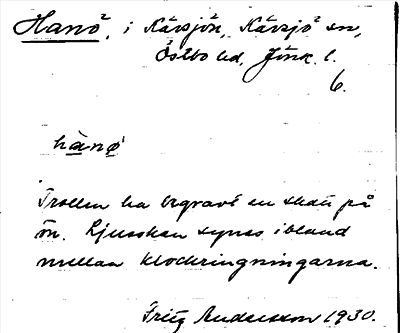 Hanö, i Kävsjön, Kävsjö sn,
Östbo hd, Jönk. l.
6.
hànø
Trollen ha begravt en skatt på
ön. Ljusskén synes ibland
mellan klockringningarna.
Fritz Andersson 1930.